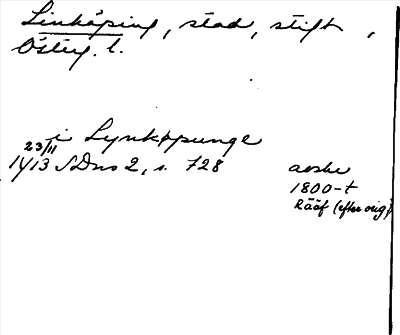 Linköping, stad, stift,
Österg. l.
i Lynkøpunge
23/11
1413 SDns 2, s. 728
avskr
1800-t
Rääf (efter orig)